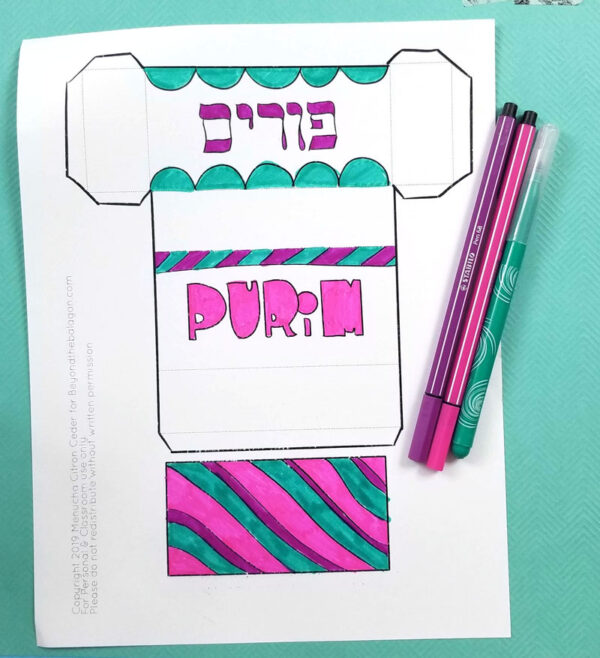 פורים
PURiM
Copyright 2019 Menucha Citron Ceder for Beyondthebalagan.com
For Personal & Classroom use only.
Please do not redistribute without written permission
STABILO Pen 68